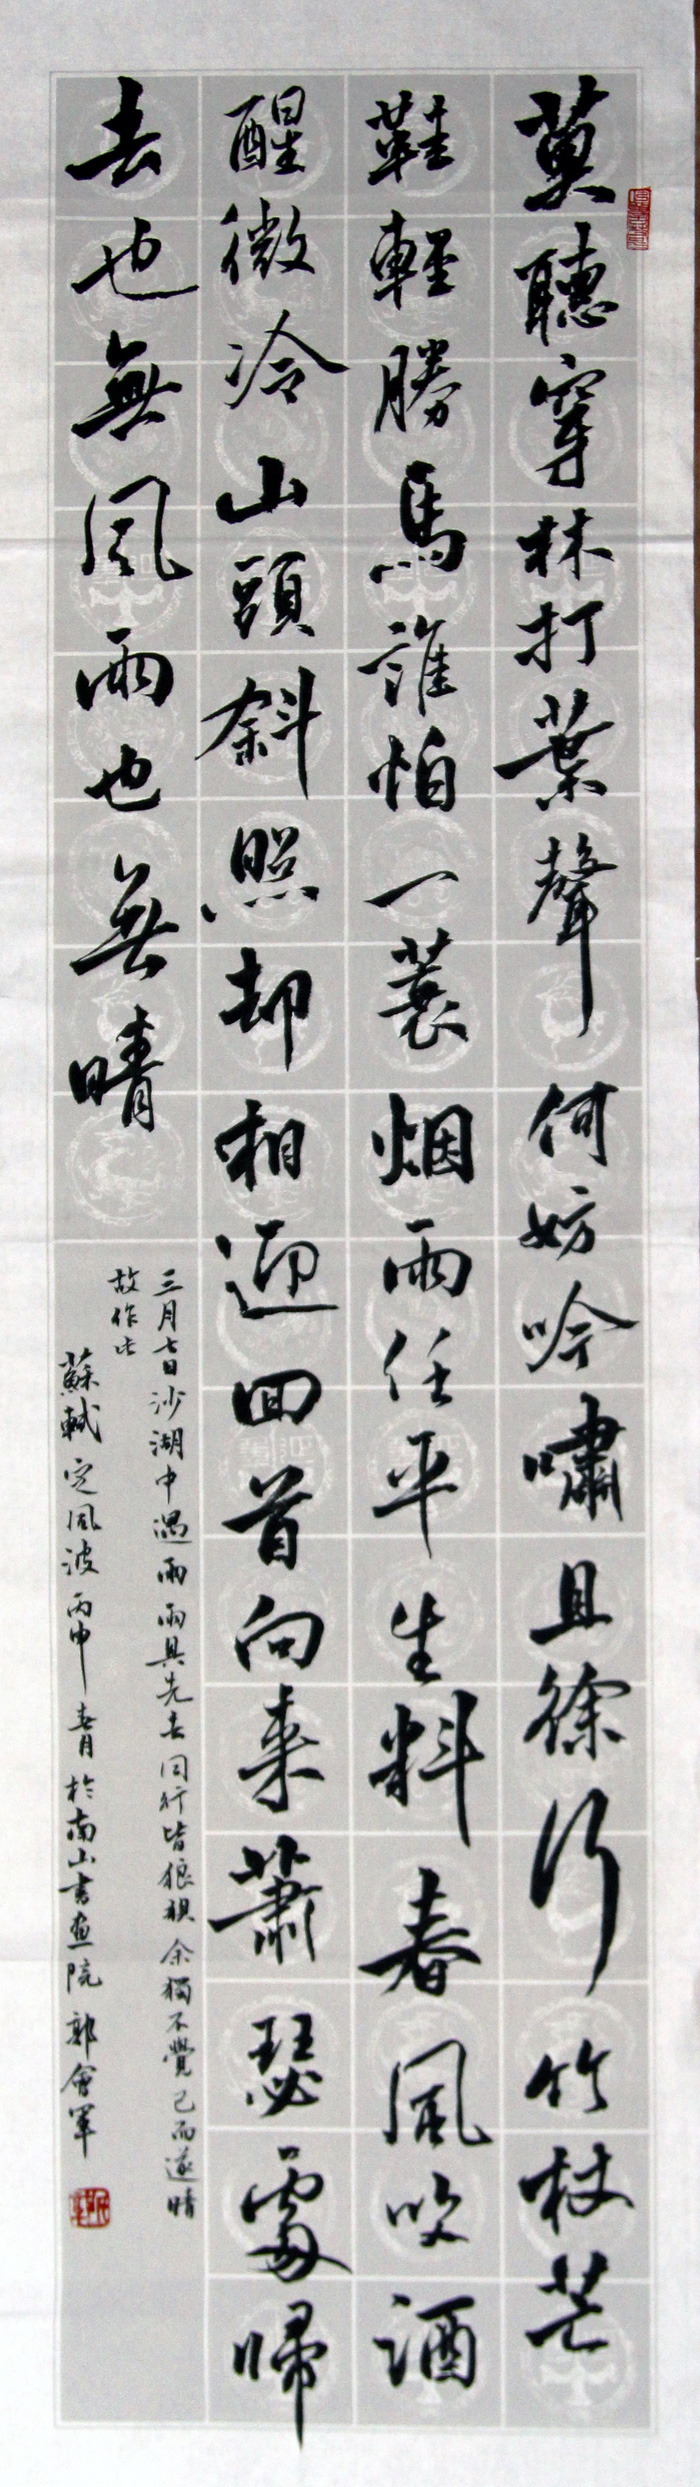 莫聽穿林打葉聲何妨吟嘯且徐行竹杖芒
鞋輕勝馬誰怕一蓑烟雨任平生料春風吹酒
醒微冷山頭斜照却相迎回首向来蕭瑟處歸
去也無風雨也無晴
三月七日沙湖中遇雨雨具先去同行皆狼狽余獨不覺已而遂晴
故作此
蘇軾定風波丙申春月於南山書畫院郭會軍